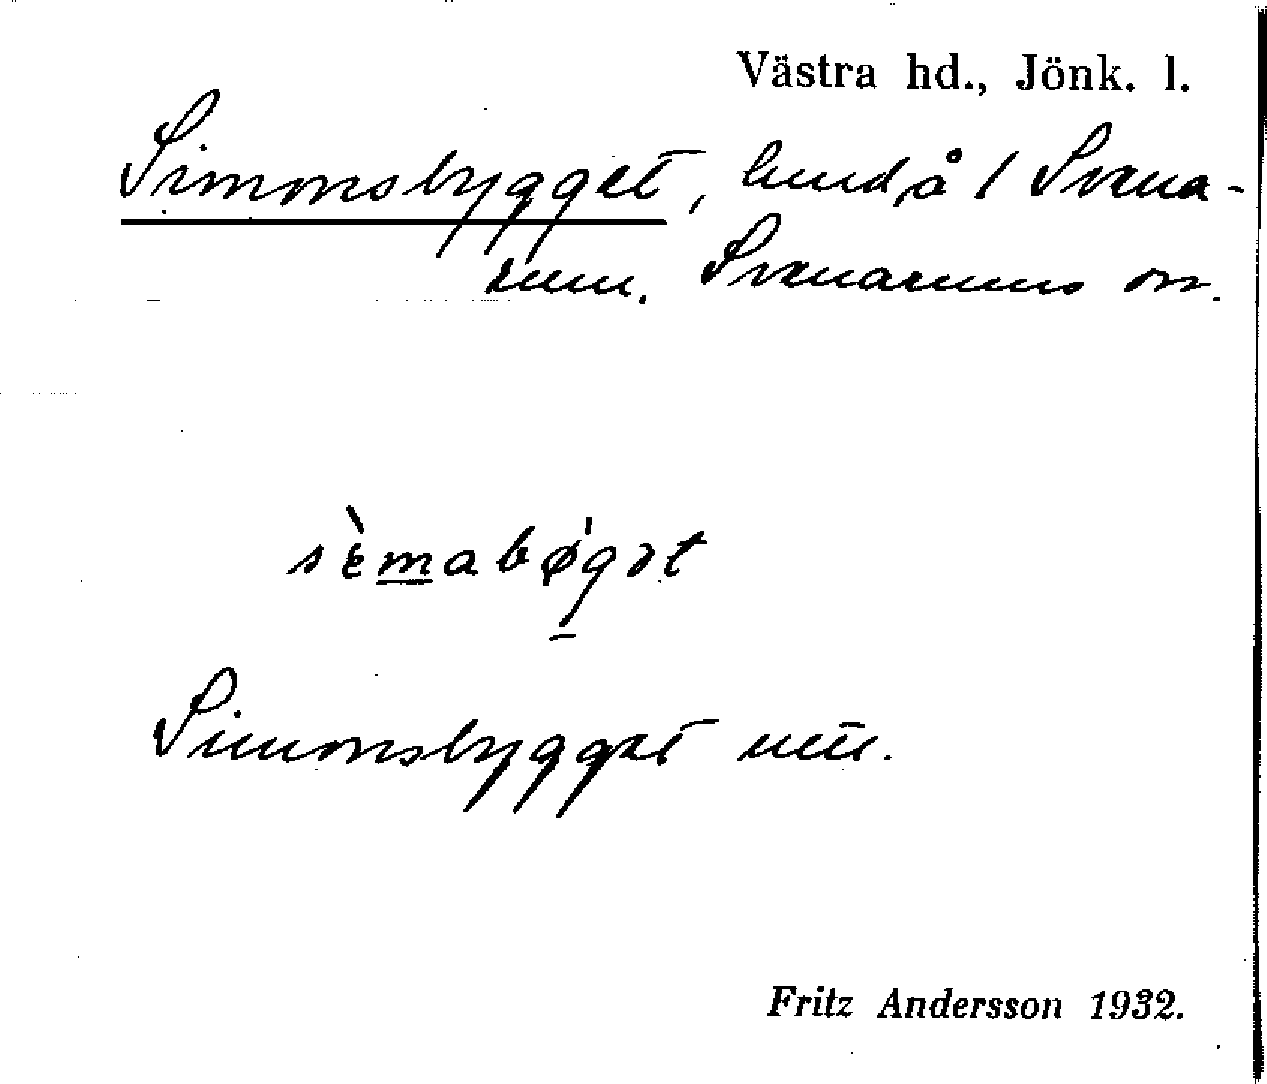 Västra hd., Jönk. l.
Simonsbygget, lund å 1 Svena-
rum. Svenarums sn.
sɛ̀mabø̍gət
Simonsbygget utt.
Fritz Andersson 1932.